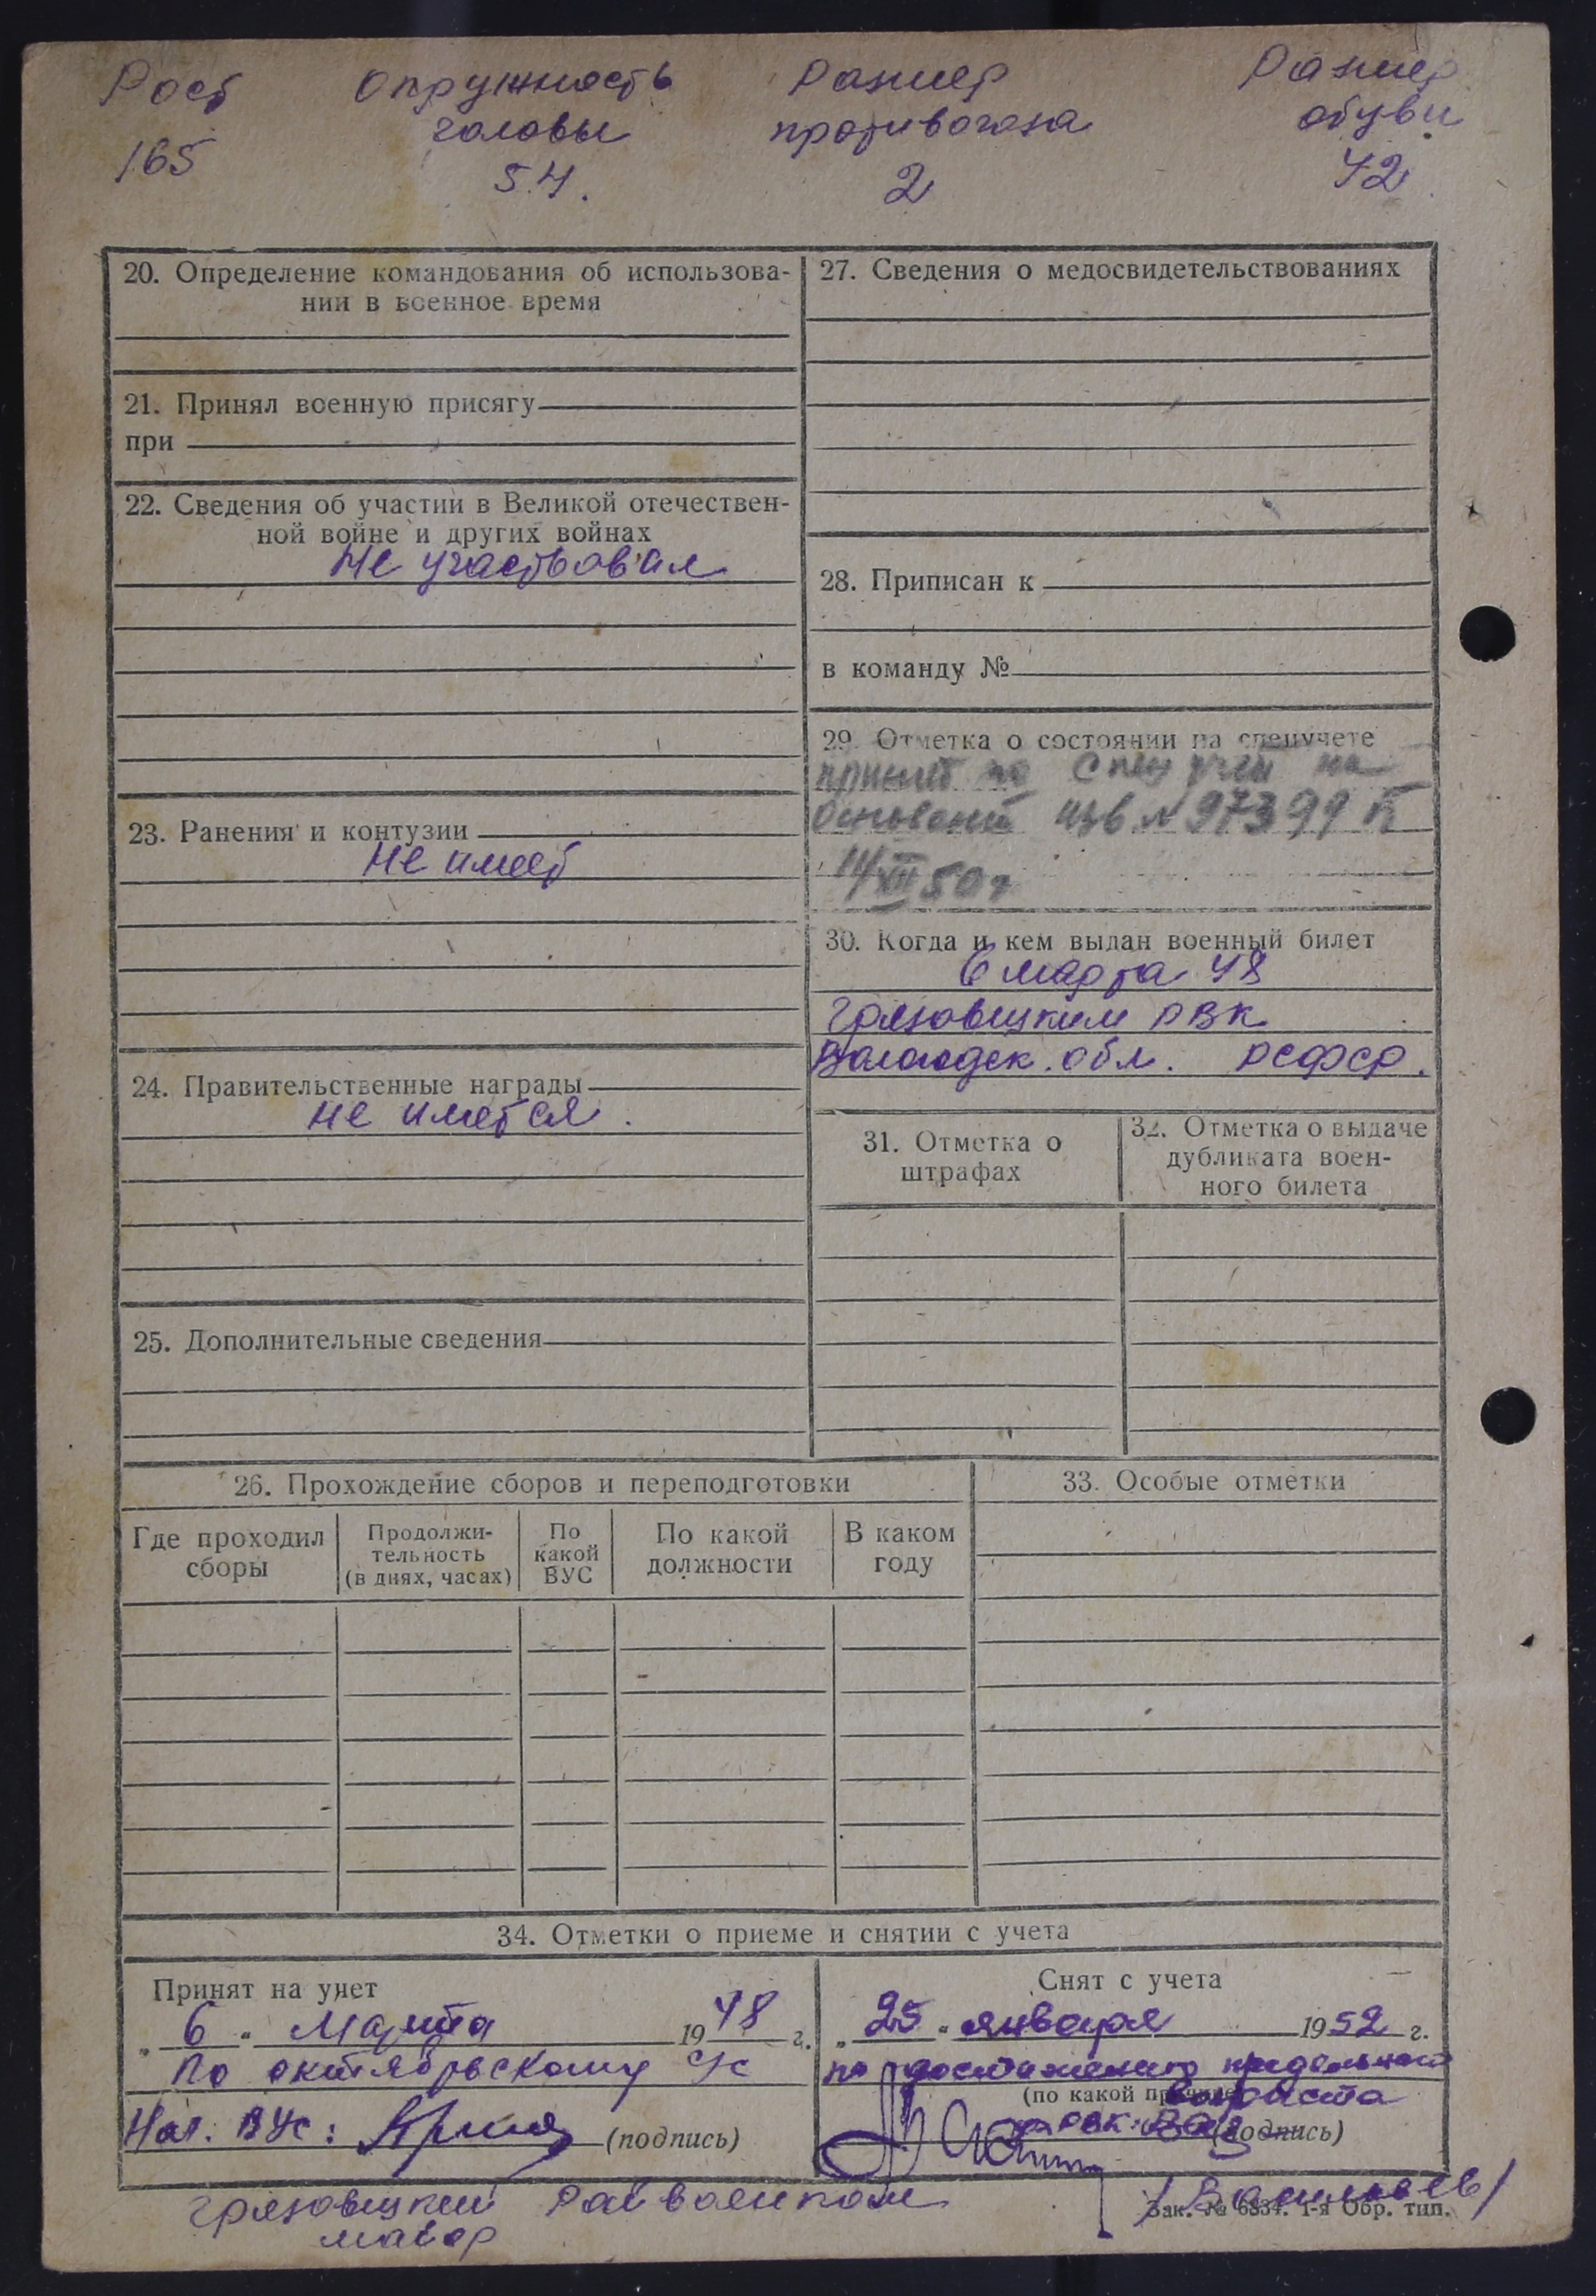 Рост Окружность Размер Размер
головы противогаза обуви
165 54. 2 42
20. Определение командования об использова-
нии в военное время
21. Принял военную присягу
при
22. Сведения об участии в Великой отечествен-
ной войне и других войнах
Не участвовал
23. Ранения и контузии
Не имеет
24. Правительственные награды
не имется.
25. Дополнительные сведения
27. Сведения о медосвидетельствованиях
28. Приписан к
в команду №
29. Отметка о состоянии на спецучете
принят на спец учет на
изв № 97399
14/XII 50г
30. Когда и кем выдан военный билет
6 марта 48
Грязовецким РВК
Вологодск. обл. РСФСР.
31. Отметка о
штрафах
32. Отметка о выдаче
дубликата воен-
ного билета
26. Прохождение сборов и переподготовки
Где проходил
сборы
Продолжи-
тельность
(в днях, часах)
По
какой
ВУС
По какой
должности
В каком
году
33. Особые отметки
34. Отметки о приеме и снятии с учета
Принят на учет
„ 6 " Марта 1948 г.
По октябрьскому с/с
Нач. ВУС: (подпись)
Грязовецкий Райвоенком
майор
Снят с учета
„ 25 " января 1952 г.
по достижению предельного
возраста
(по какой причине)
РВК: (подпись)
/Васильев/
Зак. № 6834. 1-я Обр. тип.